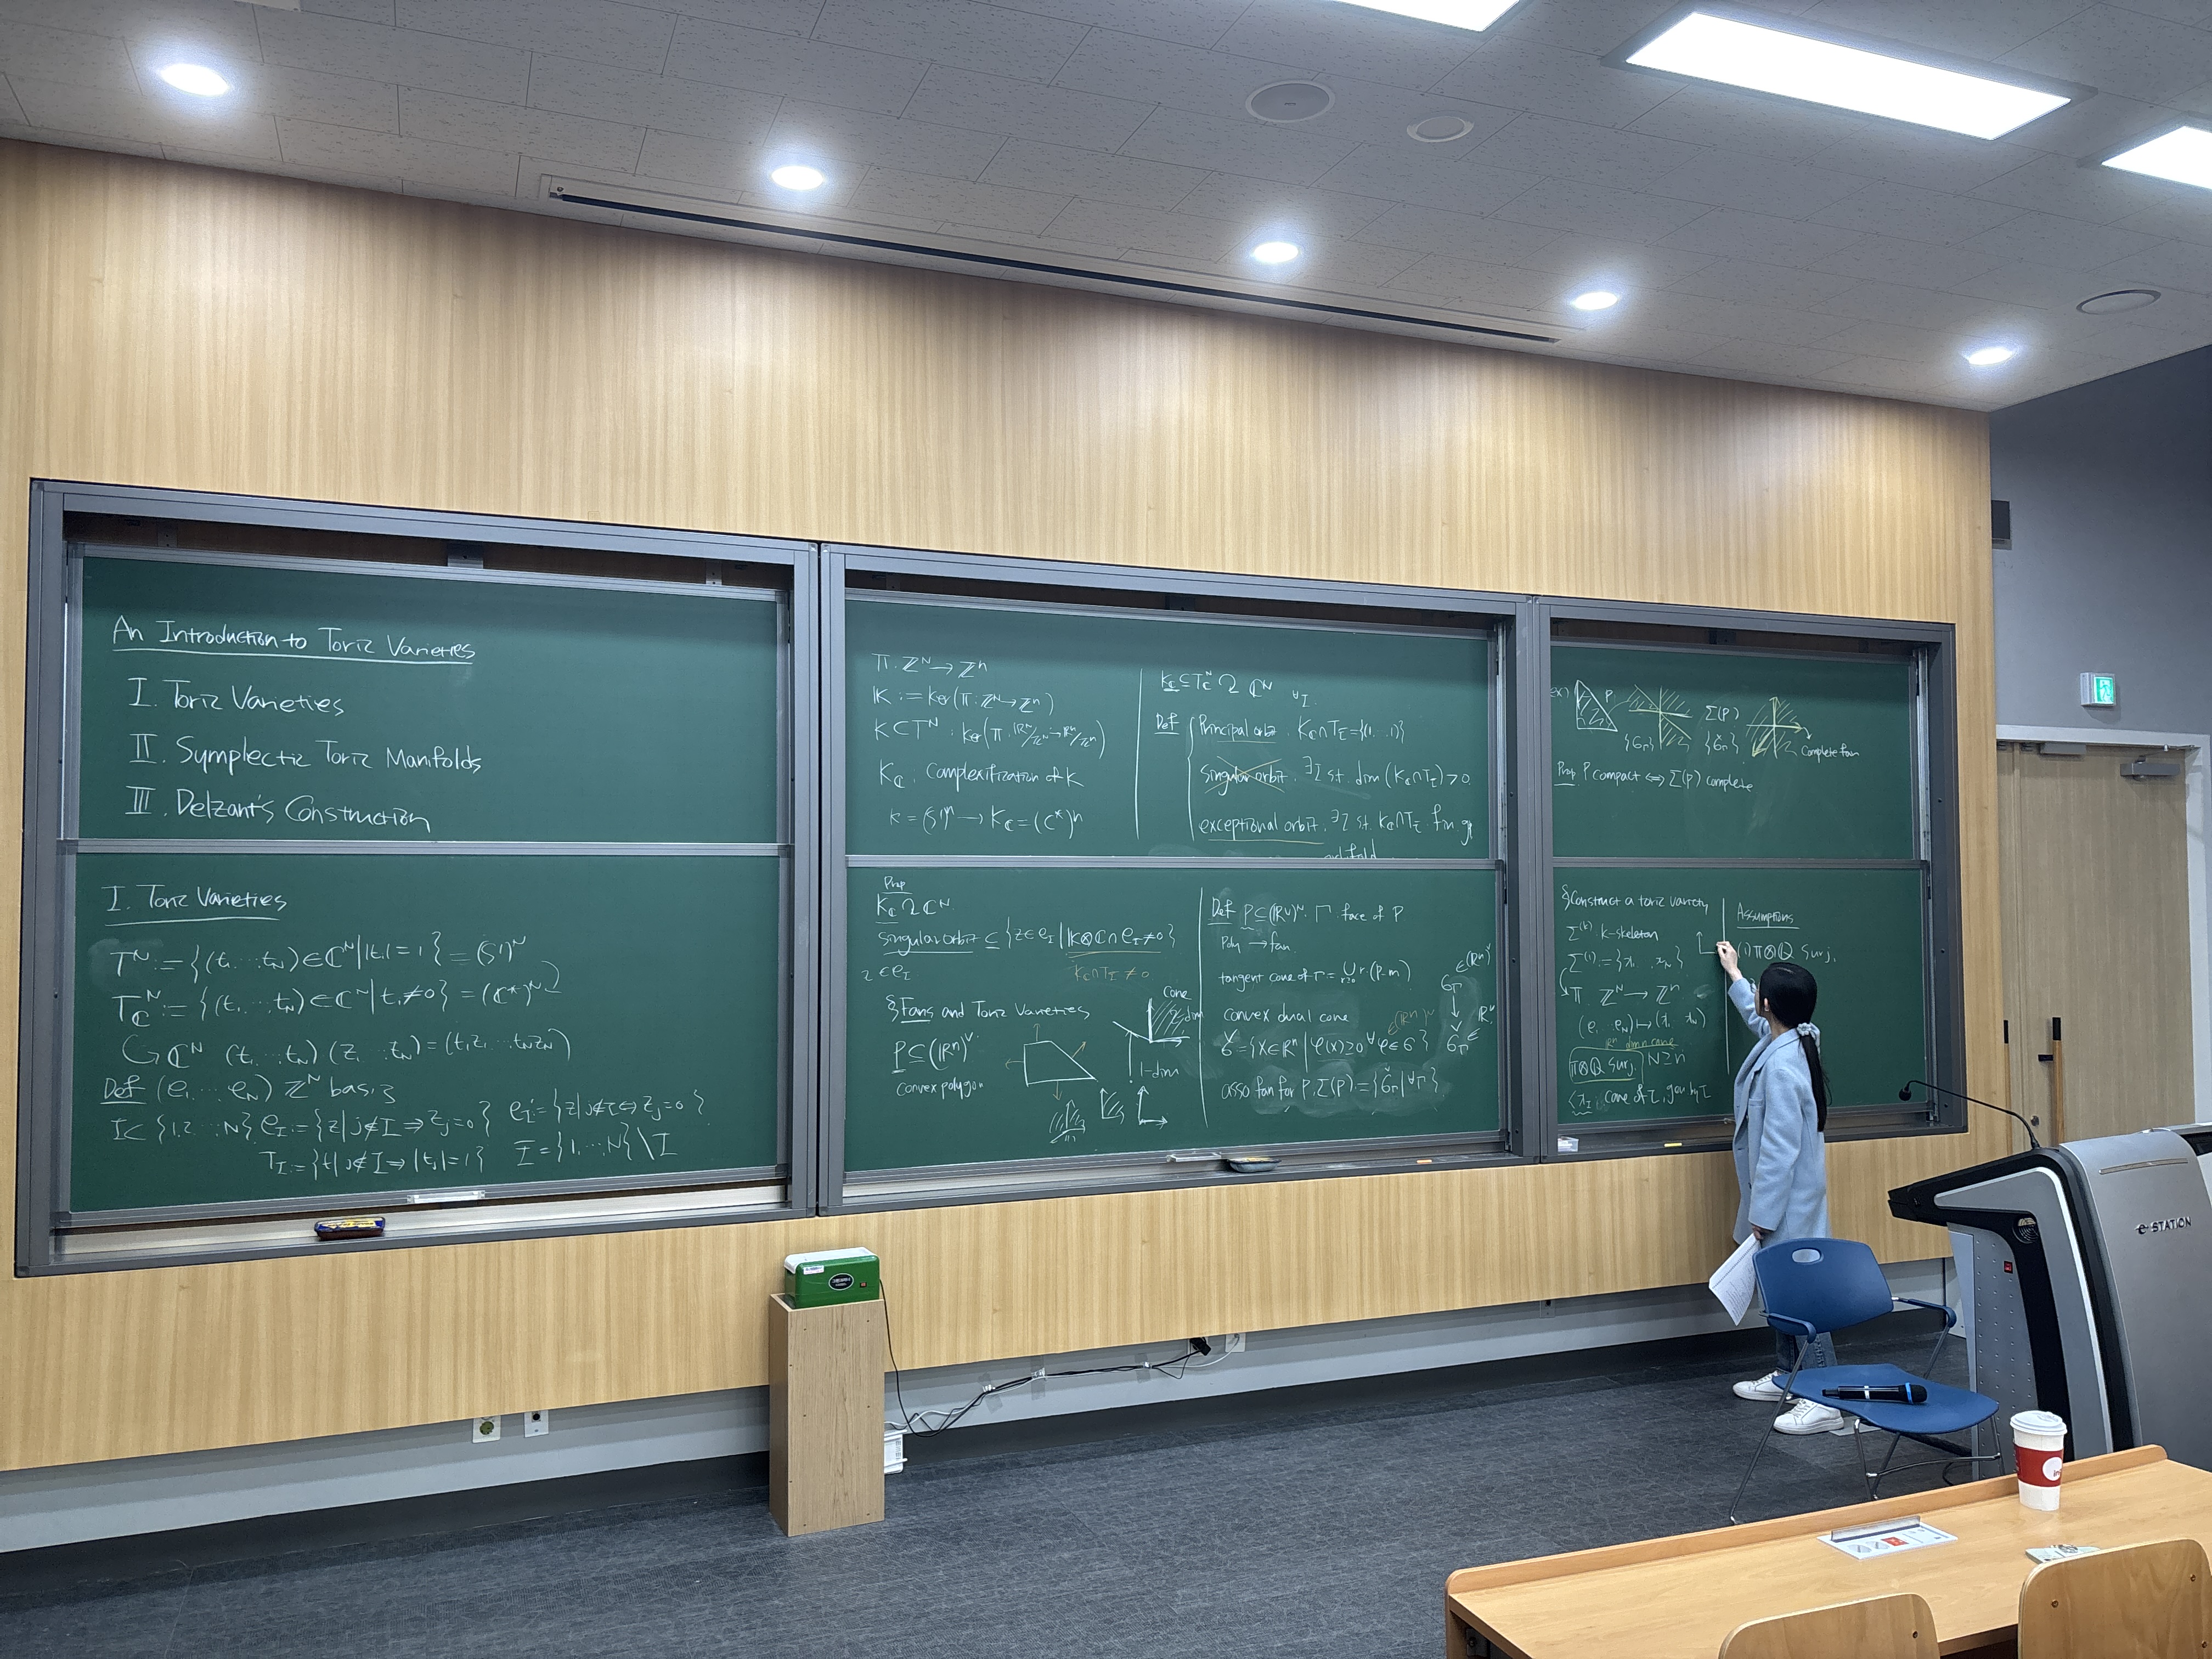 An Introduction to Toric Varieties
I. Toric Varieties
II. Symplectic Toric Manifolds
III. Delzant's Construction
I. Toric Varieties
T^N := {(t₁ ... t_N) ∈ ℂ^N | |tᵢ| = 1} = (S¹)^N
T_ℂ^N := {(t₁ ... t_N) ∈ ℂ^N | tᵢ ≠ 0} = (ℂ*)^N
↪ ℂ^N (t₁ ... t_N)(z₁ ... z_N) = (t₁z₁ ... t_Nz_N)
Def (e₁ ... e_N) ℤ^N basis
I ⊂ {1,2 ... N} e_I := {z | j ∉ I ⇒ z_j = 0} e_I° := {z | j ∉ I ⇔ z_j = 0}
T_I := {t | j ∉ I ⇒ |t_j| = 1} Ī = {1, ... N} \ I
π: ℤ^N → ℤ^n
𝕂 := ker(π: ℤ^N → ℤ^n)
K ⊂ T^N : ker(π: ℝ^N/ℤ^N → ℝ^n/ℤ^n)
K_ℂ : Complexification of K
K = (S¹)^n → K_ℂ = (ℂ*)^n
K_ℂ ⊆ T_ℂ^N ↷ ℂ^N
∀I
Def Principal orbit . K_ℂ ∩ T_Ī = {(1, ... 1)}
Singular orbit . ∃I st. dim (K_ℂ ∩ T_Ī) > 0
exceptional orbit . ∃I st. K_ℂ ∩ T_Ī fin. gp
Prop
K_ℂ ↷ ℂ^N
singular orbit ⊆ {z ∈ e_I | 𝕂⊗ℂ ∩ e_Ī ≠ 0}
z ∈ e_I
K_ℂ ∩ T_Ī ≠ 0
§ Fans and Toric Varieties
P ⊆ (ℝ^n)^∨
Convex polygon
Cone
1-dim
Def P ⊆ (ℝ^n)^∨. Γ. face of P
Poly → fan
tangent cone of Γ = ∪_{r≥0} r·(P-m)
Convex dual cone
σ̌ = {x ∈ ℝ^n | φ(x) ≥ 0 ∀φ ∈ σ}
asso fan for P, Σ(P) := {σ̌_Γ | ∀Γ}
σ_Γ ∈ (ℝ^n)^∨
↓
σ̌_Γ ∈ ℝ^n
ex) P
{σ_Γ}
Σ(P)
{σ̌_Γ}
Complete fan
Prop P compact ⇔ Σ(P) complete
§ Construct a toric variety
Σ^(k) k-skeleton
Σ^(1) := {x₁ ... x_N}
π. ℤ^N → ℤ^n
(e₁ ... e_N) ↦ (x₁ ... x_N)
π⊗ℚ surj. N ≥ n
Assumptions
(1) π⊗ℚ surj.
e-STATION